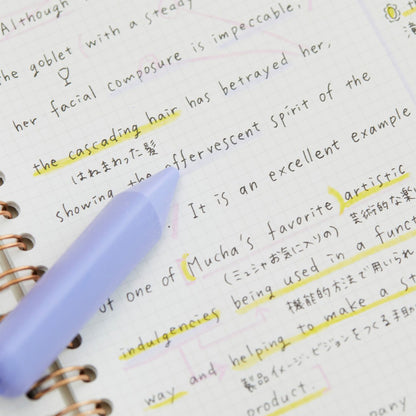 Although
the goblet (with a steady
her facial composure is impeccable,
the cascading hair has betrayed her,
はねまわった髪
showing the effervescent spirit of the
. It is an excellent example
ut one of (Mucha's favorite) artistic
(ミュシャお気に入りの) 芸術的な楽
indulgencies being used in a funct
機能的方法で用いられ
way and helping to make a s
製品イメージ・ビジョンをつくる手助
product.
many